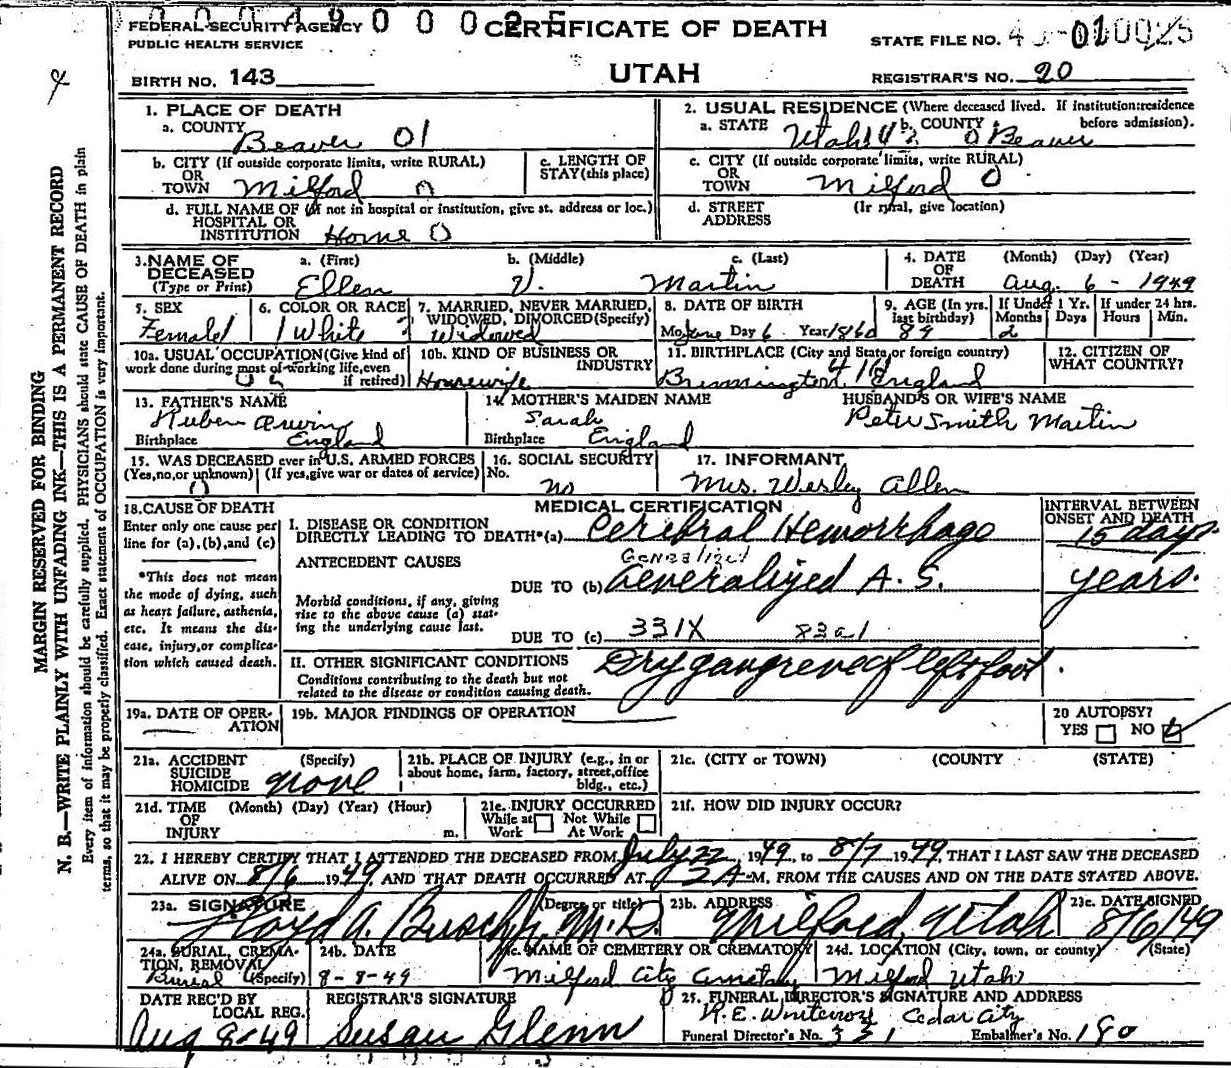 FEDERAL SECURITY AGENCY
PUBLIC HEALTH SERVICE
CERTIFICATE OF DEATH
STATE FILE NO.
BIRTH NO. 143
UTAH
REGISTRAR'S NO. 20
1. PLACE OF DEATH
a. COUNTY Beaver 01
b. CITY (If outside corporate limits, write RURAL)
OR
TOWN Milford 0
c. LENGTH OF
STAY (this place)
d. FULL NAME OF (If not in hospital or institution, give st. address or loc.)
HOSPITAL OR
INSTITUTION Home 0
2. USUAL RESIDENCE (Where deceased lived. If institution:residence
before admission).
a. STATE Utah 43 b. COUNTY 0 Beaver
c. CITY (If outside corporate limits, write RURAL)
OR
TOWN Milford 0
d. STREET (If rural, give location)
ADDRESS
3. NAME OF DECEASED (Type or Print)
a. (First) b. (Middle) c. (Last)
Ellen V. Martin
4. DATE OF DEATH (Month) (Day) (Year)
Aug. 6 - 1949
5. SEX
Female 1
6. COLOR OR RACE
1 White
7. MARRIED, NEVER MARRIED,
WIDOWED, DIVORCED (Specify)
Widowed
8. DATE OF BIRTH
Mo June Day 6 Year 1860
9. AGE (In yrs. last birthday) 89
If Under 1 Yr. Months 2 Days
If under 24 hrs. Hours Min.
10a. USUAL OCCUPATION (Give kind of
work done during most of working life, even
if retired)
10b. KIND OF BUSINESS OR
INDUSTRY
Housewife
11. BIRTHPLACE (City and State, or foreign country)
England
12. CITIZEN OF
WHAT COUNTRY?
13. FATHER'S NAME
Birthplace England
14. MOTHER'S MAIDEN NAME
Sarah
Birthplace England
HUSBAND'S OR WIFE'S NAME
Peter Smith Martin
15. WAS DECEASED ever in U.S. ARMED FORCES
(Yes, no, or unknown) (If yes, give war or dates of service)
0
16. SOCIAL SECURITY
No.
no
17. INFORMANT
Mrs. Wesley Allen
18. CAUSE OF DEATH
Enter only one cause per
line for (a), (b), and (c)
*This does not mean
the mode of dying, such
as heart failure, asthenia,
etc. It means the dis-
ease, injury, or complica-
tion which caused death.
MEDICAL CERTIFICATION
I. DISEASE OR CONDITION
DIRECTLY LEADING TO DEATH* (a) Cerebral Hemorrhage
ANTECEDENT CAUSES
Generalized
DUE TO (b) Generalized A. S.
Morbid conditions, if any, giving
rise to the above cause (a) stat-
ing the underlying cause last.
DUE TO (c) 331X
II. OTHER SIGNIFICANT CONDITIONS
Conditions contributing to the death but not
related to the disease or condition causing death.
Dry gangrene of left foot.
INTERVAL BETWEEN
ONSET AND DEATH
15 days
years.
19a. DATE OF OPER-
ATION
19b. MAJOR FINDINGS OF OPERATION
20 AUTOPSY?
YES NO
21a. ACCIDENT (Specify)
SUICIDE
HOMICIDE none
21b. PLACE OF INJURY (e.g., in or
about home, farm, factory, street, office
bldg., etc.)
21c. (CITY OR TOWN) (COUNTY) (STATE)
21d. TIME (Month) (Day) (Year) (Hour)
OF
INJURY m.
21e. INJURY OCCURRED
While at Work Not While At Work
21f. HOW DID INJURY OCCUR?
22. I HEREBY CERTIFY THAT I ATTENDED THE DECEASED FROM July 22, 1949, to 8/7 1949, THAT I LAST SAW THE DECEASED
ALIVE ON 8/6 1949, AND THAT DEATH OCCURRED AT 2 A M, FROM THE CAUSES AND ON THE DATE STATED ABOVE.
23a. SIGNATURE (Degree or title)
M.D.
23b. ADDRESS
Milford, Utah
23c. DATE SIGNED
8/6/49
24a. BURIAL, CREMA-
TION, REMOVAL (Specify)
Burial
24b. DATE
8-8-49
24c. NAME OF CEMETERY OR CREMATORY
Milford City Cemetery
24d. LOCATION (City, town, or county) (State)
Milford Utah
DATE REC'D BY
LOCAL REG.
Aug 8-49
REGISTRAR'S SIGNATURE
Susan Glenn
25. FUNERAL DIRECTOR'S SIGNATURE AND ADDRESS
Cedar City
Funeral Director's No. 331 Embalmer's No. 180
MARGIN RESERVED FOR BINDING
N. B.—WRITE PLAINLY WITH UNFADING INK—THIS IS A PERMANENT RECORD
Every item of information should be carefully supplied. PHYSICIANS should state CAUSE OF DEATH in plain
terms, so that it may be properly classified. Exact statement of OCCUPATION is very important.